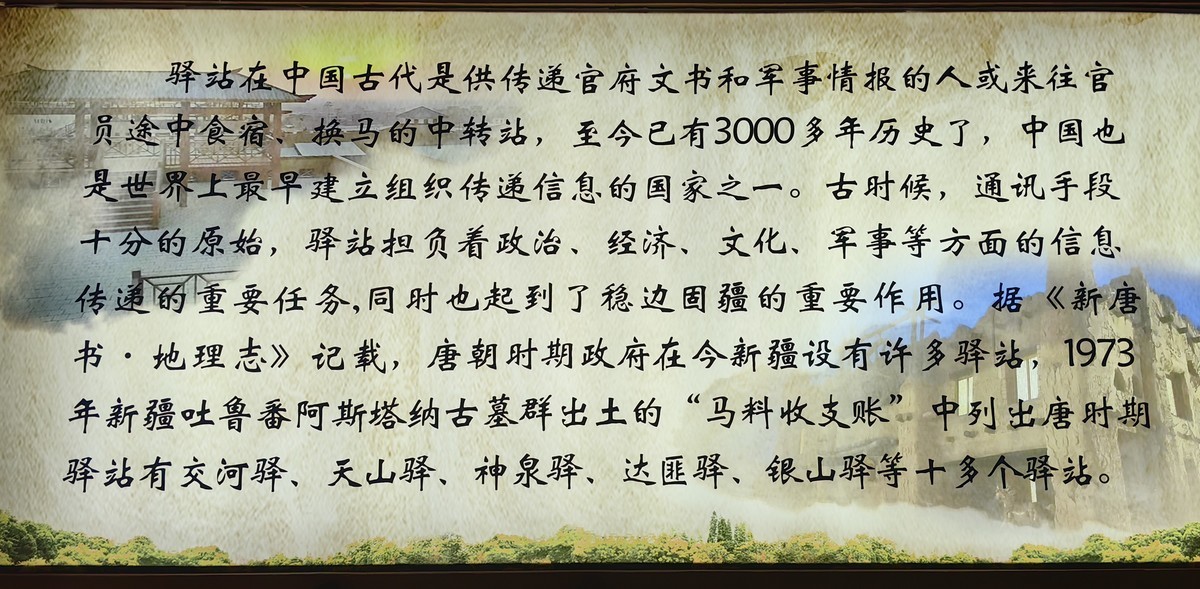 驿站在中国古代是供传递官府文书和军事情报的人或来往官
员途中食宿、换马的中转站，至今已有3000多年历史了，中国也
是世界上最早建立组织传递信息的国家之一。古时候，通讯手段
十分的原始，驿站担负着政治、经济、文化、军事等方面的信息
传递的重要任务,同时也起到了稳边固疆的重要作用。据《新唐
书·地理志》记载，唐朝时期政府在今新疆设有许多驿站，1973
年新疆吐鲁番阿斯塔纳古墓群出土的“马料收支账”中列出唐时期
驿站有交河驿、天山驿、神泉驿、达匪驿、银山驿等十多个驿站。